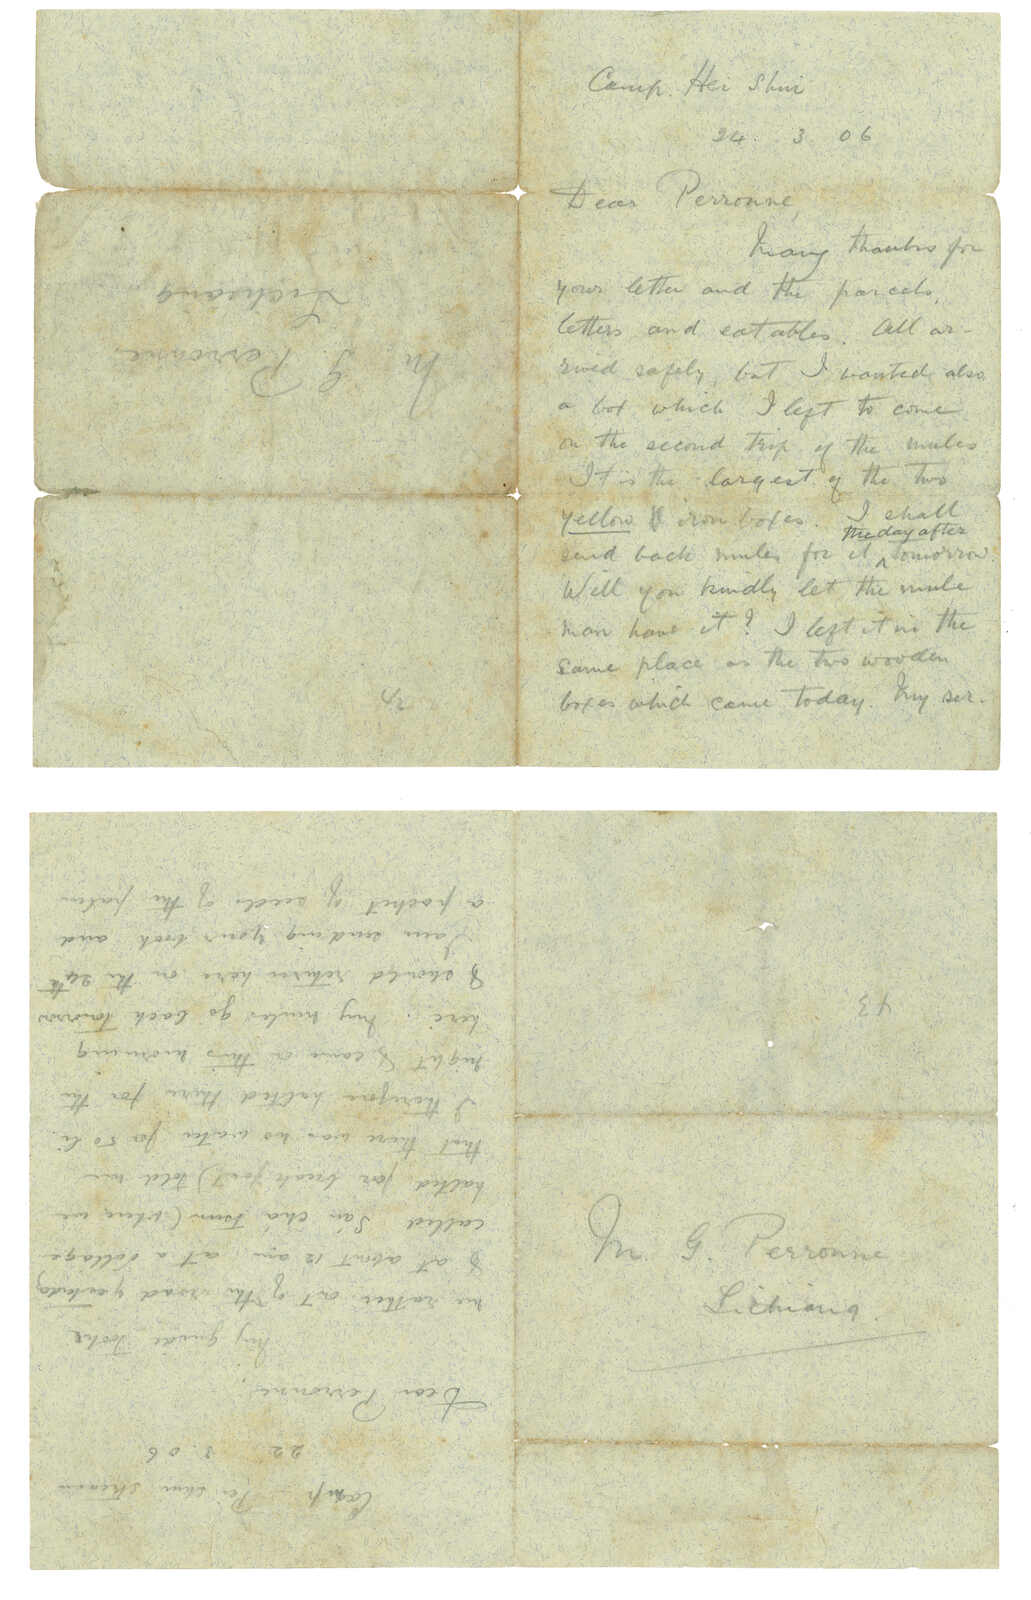 Camp. Hei Shui
24. 3 06
Dear Perronne,
Many thanks for
your letter and the parcels,
letters and eatables. All ar-
rived safely, but I wanted also
a box which I left to come
on the second trip of the mules
It is the largest of the two
yellow iron boxes. I shall
the day after
send back mules for it ^ tomorrow.
Will you kindly let the mule
man have it? I left it in the
same place as the two wooden
boxes which came today. My ser-
M. G. Perronne
Lichiang
M. G. Perronne
Lichiang.
43
Camp Pei Shui stream
22 3. 06
Dear Perronne,
My guide took
me rather out of the road yesterday
& at about 12 am, at a village
called San Cha Tsun (where we
halted for breakfast) told me
that there was no water for 50 li.
I therefore halted there for the
night & came on this morning
here. My mules go back tomorrow
& should return here on the 24th
I am sending your book and
a packet of seeds of the palm